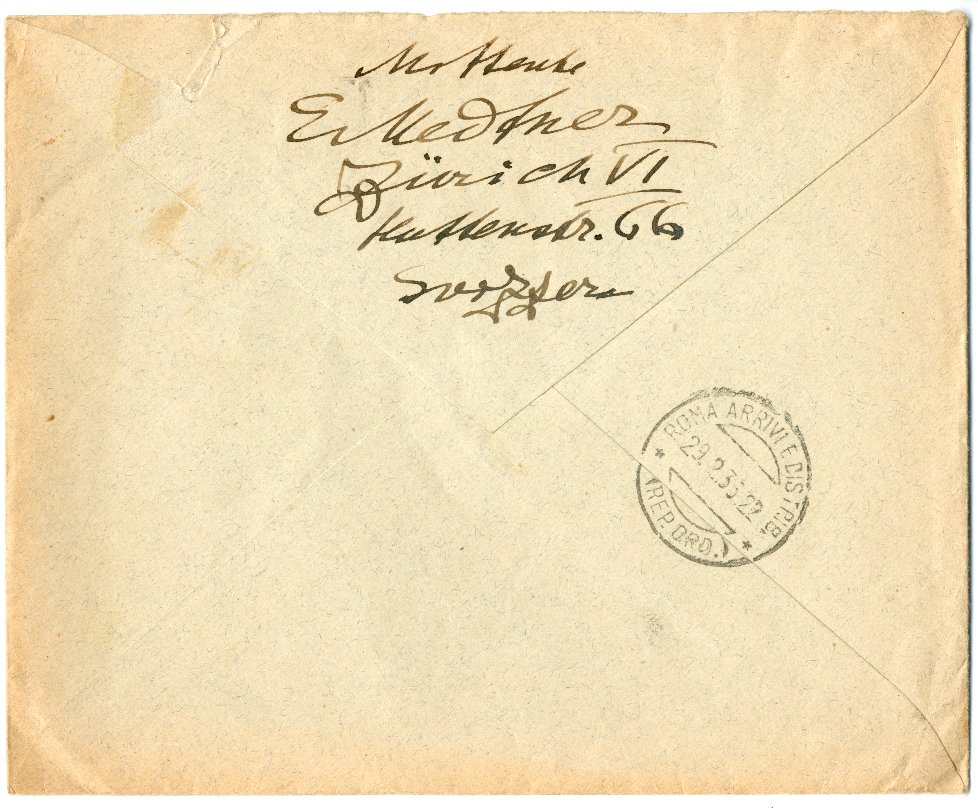 Mittente
E. Medtner
Zürich VI
Huttenstr. 66
Svizzera
ROMA ARRIVI E DISTRIB.
29.2.36.22
(REP. ORD.)